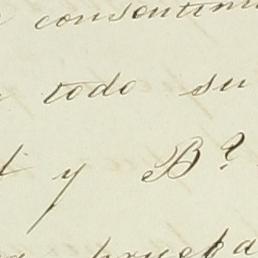 consentim
todo su
y B?
prueba